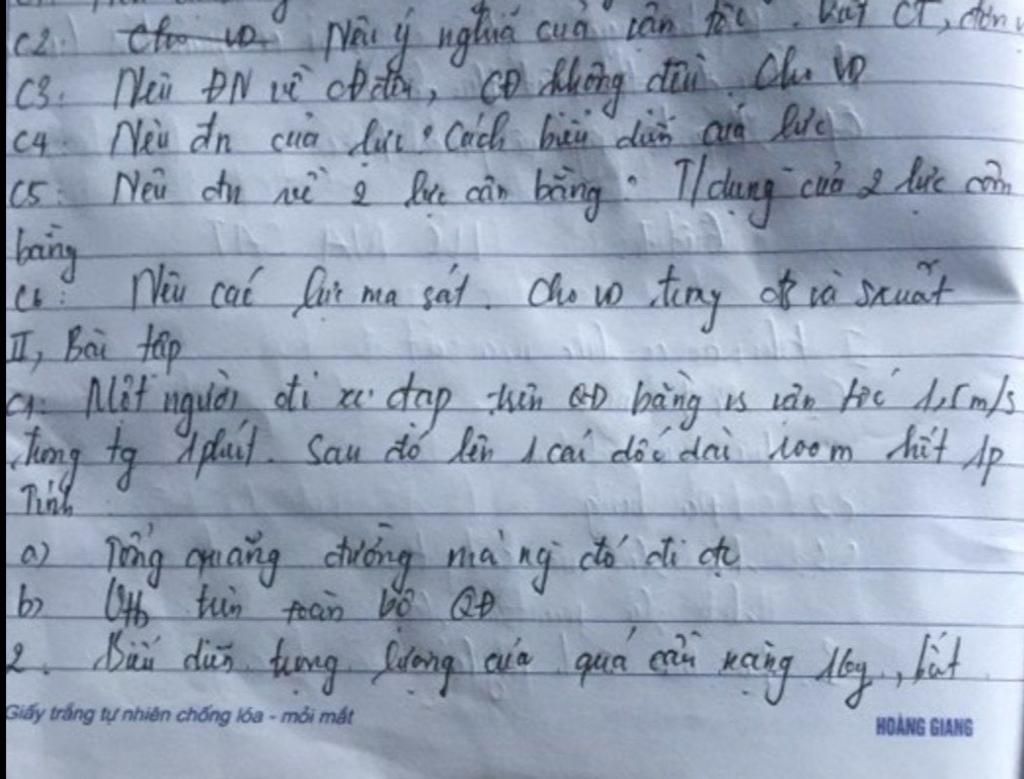 C2. Cho VD. Nêu ý nghĩa của vận tốc. Viết CT, đơn v
C3: Nêu ĐN về cđ đều, CĐ không đều. Cho VD
C4. Nêu đn của lực. Cách biểu diễn của lực
C5: Nêu đn về 2 lực cân bằng. T/dụng của 2 lực cân
bằng
C6: Nêu các lực ma sát. Cho VD trong đs và sxuất
II, Bài tập
C1: Một người đi xe đạp trên QĐ bằng vs vận tốc 1,5m/s
trong tg 1 phút. Sau đó lên 1 cái dốc dài 100m hết 1p
Tính
a) Tổng quãng đường mà ng đó đi đc
b) Vtb trên toàn bộ QĐ
2. Biểu diễn trọng lượng của quả cầu nặng 1kg, biết
Giấy trắng tự nhiên chống lóa - mỏi mắt
HOÀNG GIANG